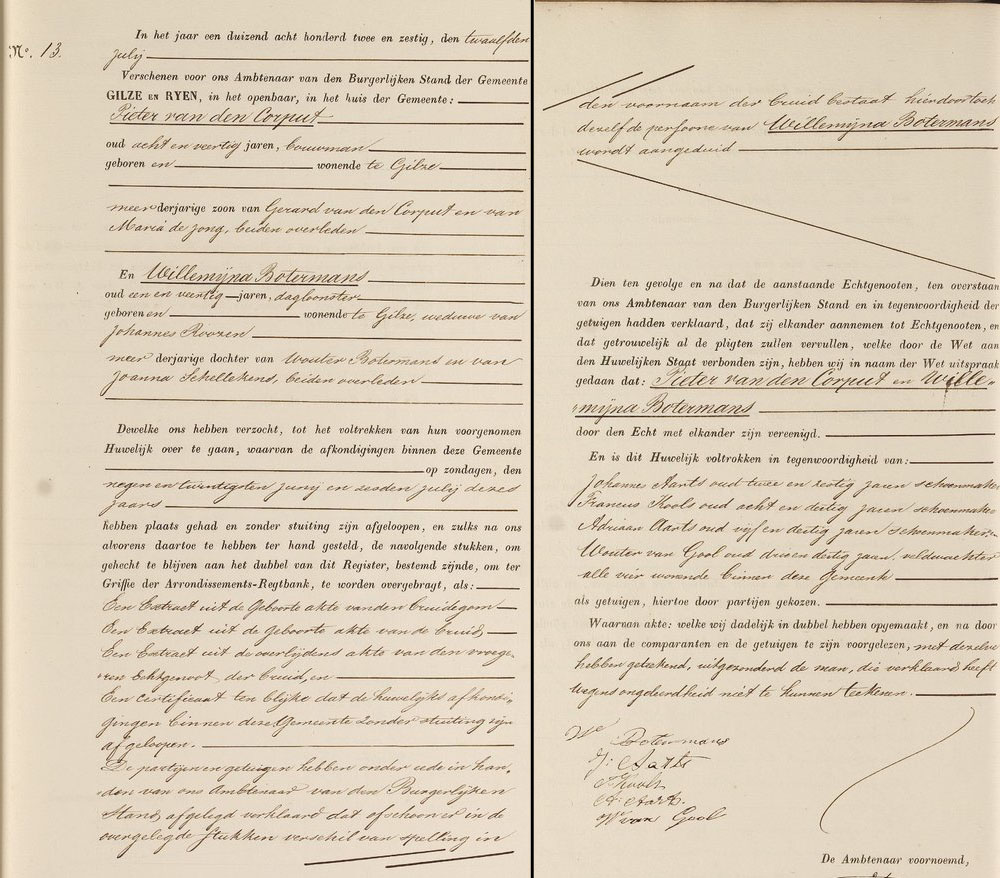 N°. 13.
In het jaar een duizend acht honderd twee en zestig, den twaalfden
julij
Verschenen voor ons Ambtenaar van den Burgerlijken Stand der Gemeente
GILZE EN RYEN, in het openbaar, in het huis der Gemeente:
Pieter van den Corput
oud acht en veertig jaren, bouwman
geboren en wonende te Gilze
meerderjarige zoon van Gerard van den Corput en van
Maria de Jong, beiden overleden
En Willemijna Botermans
oud een en veertig jaren, dagloonster
geboren en wonende te Gilze, weduwe van
Johannes Roozen
meer derjarige dochter van Wouter Botermans en van
Joanna Schellekens, beiden overleden
Dewelke ons hebben verzocht, tot het voltrekken van hun voorgenomen
Huwelijk over te gaan, waarvan de afkondigingen binnen deze Gemeente
op zondagen, den
negen en twintigsten junij en zesden julij dezes
jaars
hebben plaats gehad en zonder stuiting zijn afgeloopen, en zulks na ons
alvorens daartoe te hebben ter hand gesteld, de navolgende stukken, om
gehecht te blijven aan het dubbel van dit Register, bestemd zijnde, om ter
Griffie der Arrondissements-Regtbank, te worden overgebragt, als:
Een Extract uit de Geboorte akte van den bruidegom
Een Extract uit de geboorte akte van de bruid
Een Extract uit de overlijdens akte van den vroege-
ren Echtgenoot der bruid, en
Een certificaat ten blijke dat de huwelijks afkondi-
gingen binnen deze Gemeente zonder stuiting zijn
afgeloopen.
De partijen en getuigen hebben onder eede in han-
den van ons Ambtenaar van den Burgerlijken
Stand, afgelegd verklaard dat ofschoon er in de
overgelegde stukken verschil van spelling in
den voornaam der bruid bestaat hierdoor toch
dezelfde persoone van Willemijna Botermans
wordt aangeduid
Dien ten gevolge en na dat de aanstaande Echtgenooten, ten overstaan
van ons Ambtenaar van den Burgerlijken Stand en in tegenwoordigheid der
getuigen hadden verklaard, dat zij elkander aannemen tot Echtgenooten, en
dat getrouwelijk al de pligten zullen vervullen, welke door de Wet aan
den Huwelijken Staat verbonden zijn, hebben wij in naam der Wet uitspraak
gedaan dat: Pieter van den Corput en Wille-
mijna Botermans
door den Echt met elkander zijn vereenigd.
En is dit Huwelijk voltrokken in tegenwoordigheid van:
Johannes Aarts oud twee en dertig jaren schoenmaker
Francus Kools oud acht en dertig jaren schoenmaker
Adriaan Aarts oud vijf en dertig jaren schoenmaker en
Wouter van Gool oud drie en dertig jaren, veldwachter
alle vier wonende binnen deze Gemeente
als getuigen, hiertoe door partijen gekozen.
Waarvan akte: welke wij dadelijk in dubbel hebben opgemaakt, en na door
ons aan de comparanten en de getuigen te zijn voorgelezen, met dezelve
hebben geteekend, uitgezonderd de man, die verklaard heeft
wegens ongeleerdheid niet te kunnen teekenen.
We Botermans
J: Aarts
F Kools
A: Aarts.
W van Gool
De Ambtenaar voornoemd,